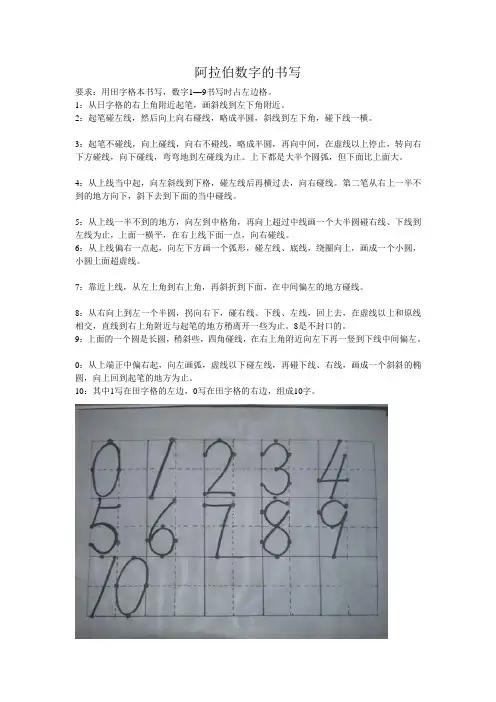 阿拉伯数字的书写
要求：用田字格本书写，数字1—9书写时占左边格。
1：从日字格的右上角附近起笔，画斜线到左下角附近。
2：起笔碰左线，然后向上向右碰线，略成半圆，斜线到左下角，碰下线一横。
3：起笔不碰线，向上碰线，向右不碰线，略成半圆，再向中间，在虚线以上停止，转向右
下方碰线，向下碰线，弯弯地到左碰线为止。上下都是大半个圆弧，但下面比上面大。
4：从上线当中起，向左斜线到下格，碰左线后再横过去，向右碰线。第二笔从右上一半不
到的地方向下，斜下去到下面的当中碰线。
5：从上线一半不到的地方，向左到中格角，再向上超过中线画一个大半圆碰右线、下线到
左线为止，上面一横平，在右上线下面一点，向右碰线。
6：从上线偏右一点起，向左下方画一个弧形，碰左线、底线，绕圈向上，画成一个小圆，
小圆上面超虚线。
7：靠近上线，从左上角到右上角，再斜折到下面，在中间偏左的地方碰线。
8：从右向上到左一个半圆，拐向右下，碰右线、下线、左线，回上去，在虚线以上和原线
相交，直线到右上角附近与起笔的地方稍离开一些为止。8是不封口的。
9：上面的一个圆是长圆，稍斜些，四角碰线，在右上角附近向左下再一竖到下线中间偏左。
0：从上端正中偏右起，向左画弧，虚线以下碰左线，再碰下线、右线，画成一个斜斜的椭
圆，向上回到起笔的地方为止。
10：其中1写在田字格的左边，0写在田字格的右边，组成10字。
0 1 2 3 4
5 6 7 8 9
10